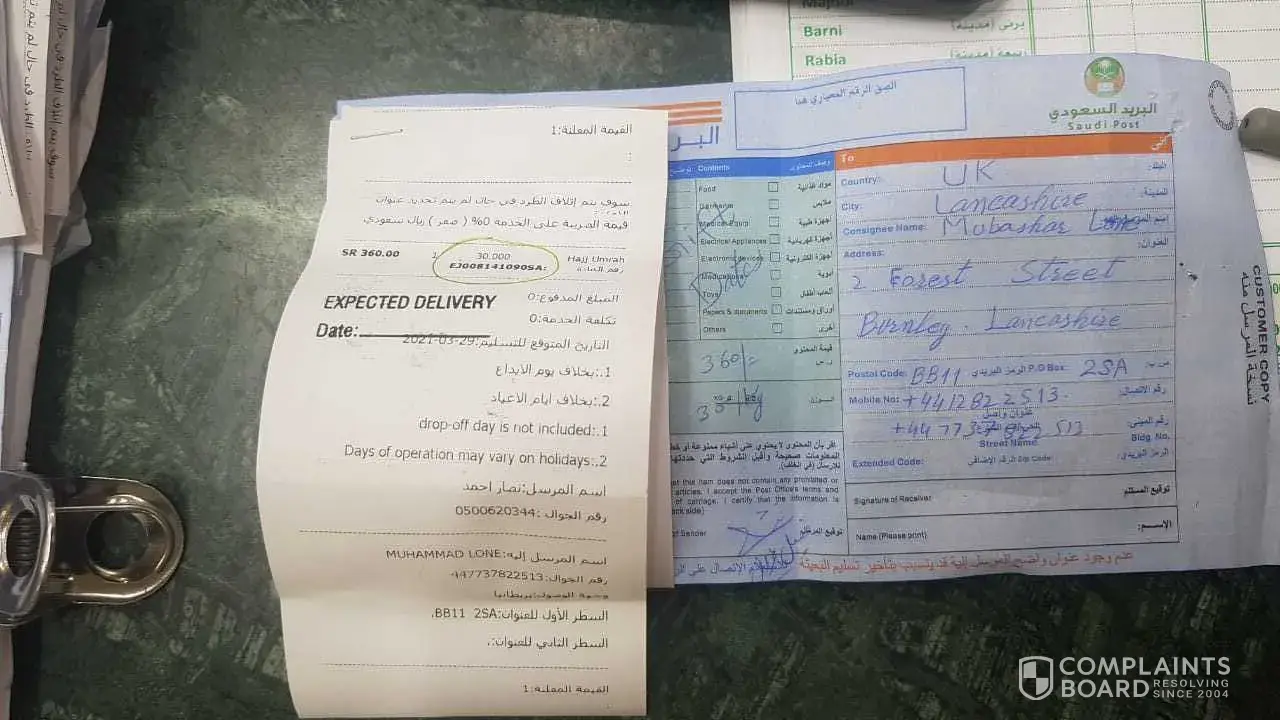 Barni برني (مدينه)
Rabia ربيعة (مدينه)
القيمة المعلنة:1
:
سوف يتم إتلاف الطرد في حال لم يتم تحديد عنوان
قيمة الضريبة على الخدمة 0% ( صفر ) ريال سعودي
SR 360.00 1 30.000 Hajj Umrah
EJ008141090SA:
المبلغ المدفوع:0
EXPECTED DELIVERY
تكلفة الخدمة:0
Date:
التاريخ المتوقع للتسليم:29-03-2021
1.:بخلاف يوم الأيداع
2.:بخلاف ايام الاعياد
drop-off day is not included:.1
Days of operation may vary on holidays:.2
اسم المرسل:نصار احمد
رقم الجوال :0500620344
اسم المرسل إليه:MUHAMMAD LONE
رقم الجوال:447737822513
وجهة الوصول:بريطانيا
السطر الأول للعنوان:BB11 2SA.
السطر الثاني للعنوان:.
القيمة المعلنة:1
الصق الرقم المعياري هنا
البريد السعودي
Saudi Post
البر
Contents وصف المحتوى
Food مواد غذائية
ملابس
Medical Equip أجهزة طبية
Electrical Appliances أجهزة كهربائية
Electronic devices أجهزة الكترونية
Medications أدوية
Toys ألعاب أطفال
Papers & documents أوراق ومستندات
Others أخرى
قيمة المحتوى
ر.س
360/-
الوزن
30 kg
أقر بأن المحتوى لا يحتوي على أشياء ممنوعة أو خط
المعلومات صحيحة وأقبل الشروط التي حددتها
للإرسال (في الخلف)
of this item does not contain any prohibited or
articles. I accept the Post Office's terms and
of carriage. I certify that the information is
ack side)
of Sender توقيع المرسل
To إلى
Country: UK البلد:
City: Lancashire المدينة:
Consignee Name: Mubashar Lone
Address: العنوان:
2 Forest Street
Burnley. Lancashire
Postal Code: BB11 الرمز البريدي P.O Box: 2SA ص.ب:
Mobile No: +441282 2513 رقم الاتصال:
عنوان واصل
رقم المبنى
Street Name Bldg. No.
Extended Code: الرقم الإضافي Zip Code: الرمز البريدي:
Signature of Receiver توقيع المستلم
Name (Please print) الإســـم:
عدم وجود عنوان واضح للمرسل إليه قد يتسبب بتأخير تسليم البعيثة
CUSTOMER COPY
نسخة المرسل منه
COMPLAINTS
BOARD RESOLVING
SINCE 2004